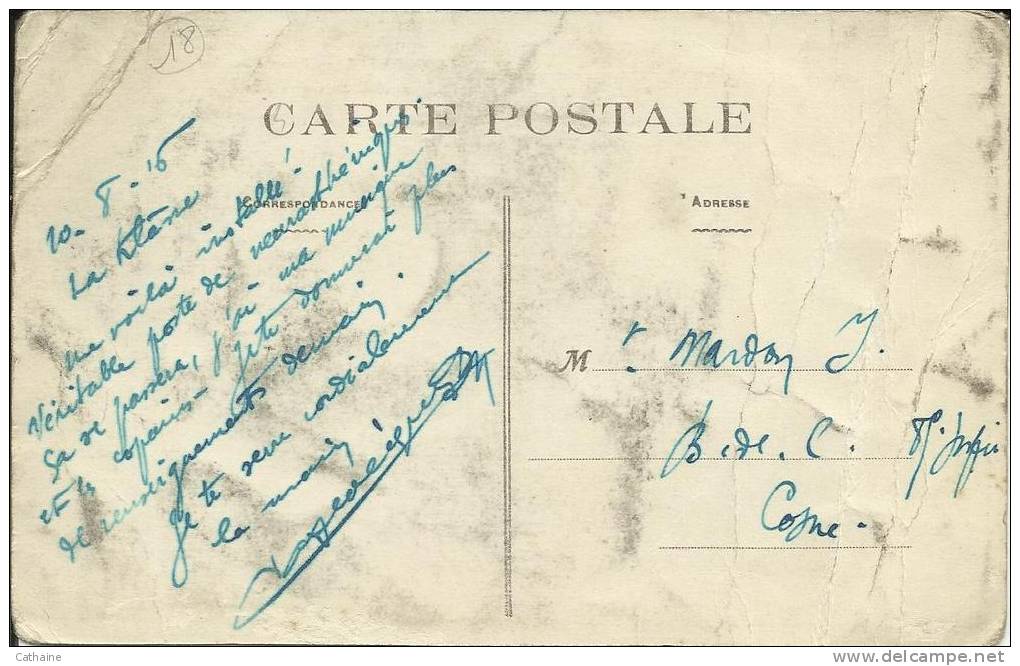 18
CARTE POSTALE
CORRESPONDANCE
ADRESSE
La
me voilà installé -
Véritable poste de neurasthénique
Ça se passera, j'ai ma musique
et les copains - Je te donnerai plus
de renseignements demain.
Je te serre cordialement
la main
M r Mardon J.
B. de. C.
Cosne -
Cathaine
delcampe.net